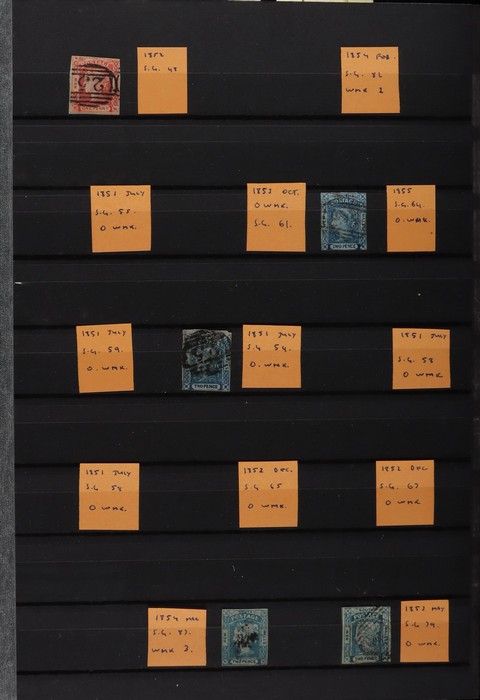 1852
S.G. 48
1854 FEB.
S.G. 82
WMK 2
1851 JULY
S.G. 55.
O WMK.
1853 OCT.
O WMK.
S.G. 61.
TWO PENCE
1855
S.G. 64.
O. WMK.
1851 JULY
S.G. 59.
O. WMK.
TWO PENCE
1851 JULY
S.G. 54.
O. WMK.
1851 JULY
S.G. 58
O WMK
1851 JULY
S.G 58
O WMK.
1852 DEC.
S.G 65
O WMK.
1852 DEC
S.G. 67
O WMK.
1854 MAR
S.G. 83.
WMK 2.
1853 MAY
S.G. 74.
O WMK.